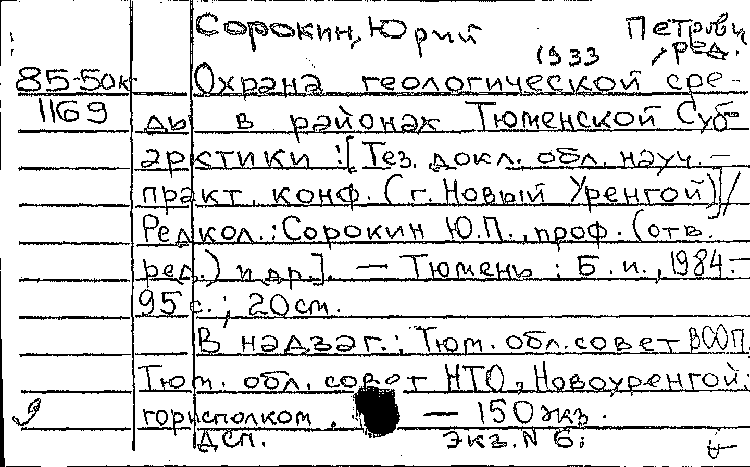 Сорокин, Юрий Петрович
1933, ред.
85-50к Охрана геологической сре-
1169 ды в районах Тюменской Суб-
арктики :[Тез. докл. обл. науч.-
практ. конф. (г. Новый Уренгой)]/
Редкол.: Сорокин Ю.П., проф. (отв.
ред.) и др.]. — Тюмень : Б. и., 1984.-
95 с.; 20 см.
В надзаг.: Тюм. обл. совет ВООП,
Тюм. обл. совет НТО, Новоуренгой.
горисполком. — 150 экз.
ДСП. Экз. N 6: